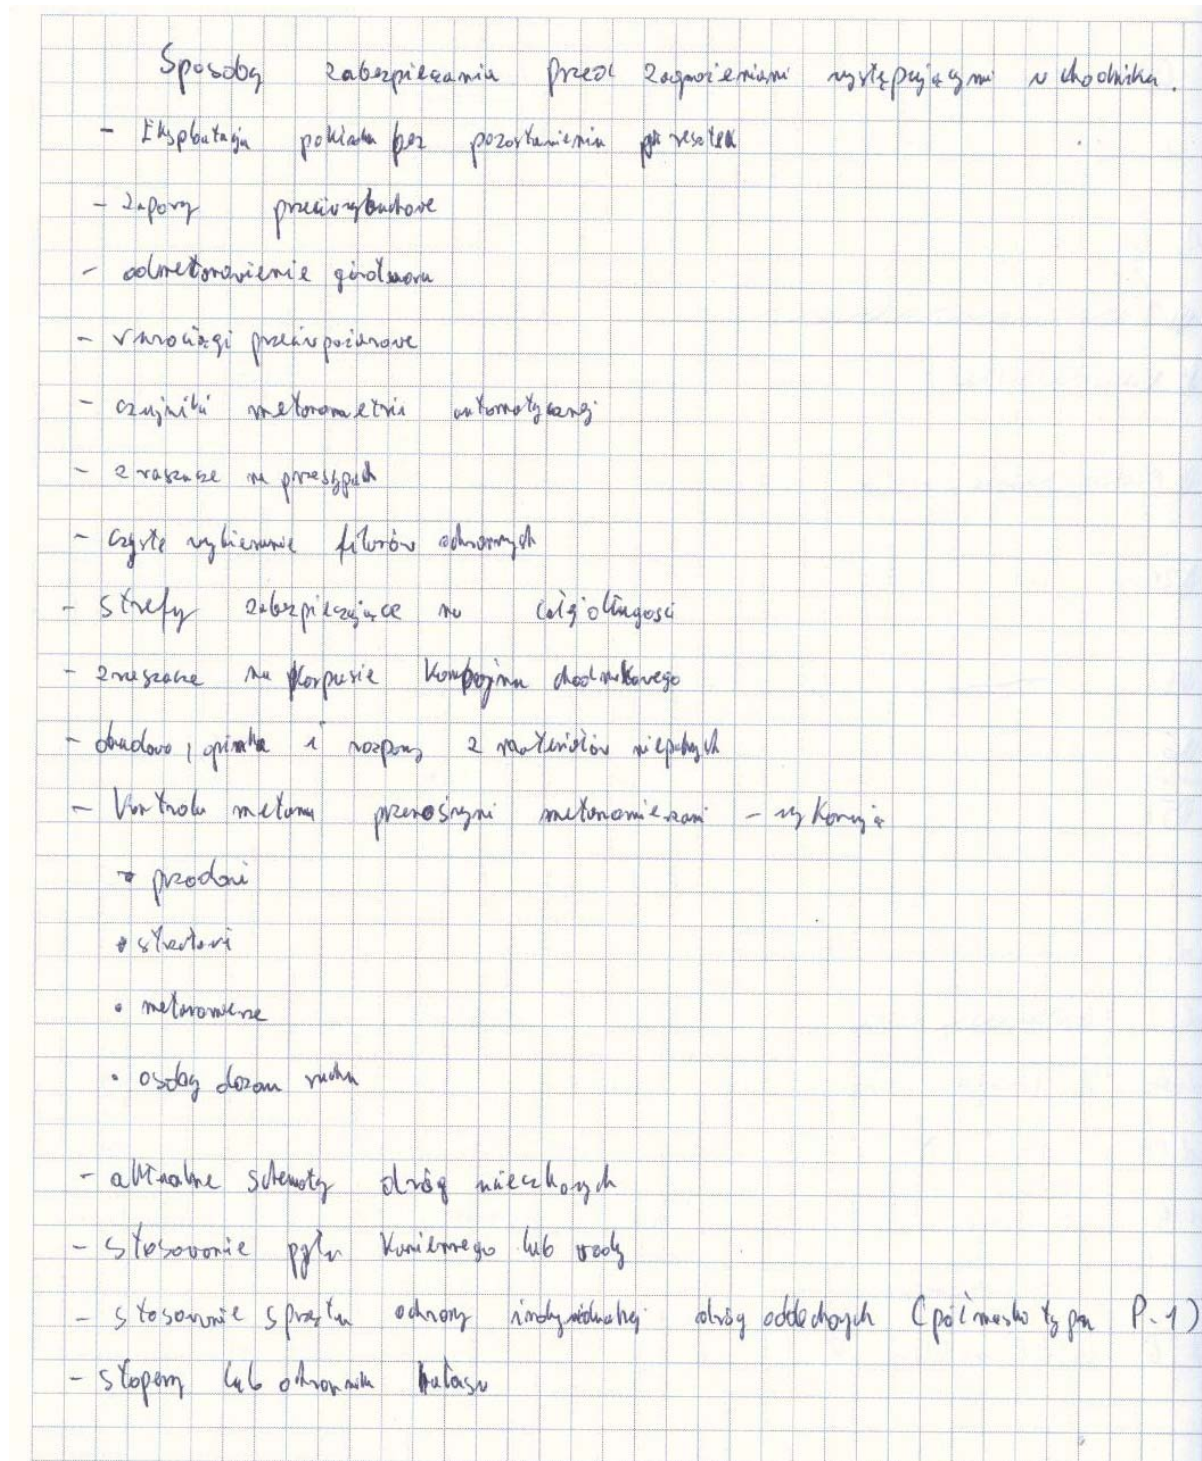 Sposoby zabezpieczania przed zagrożeniami występującymi w chodniku.
- Eksploatacja pokładu bez pozostawienia resztek
- zapory przeciwwybuchowe
- odmetanowienie górotworu
- rurociągi przeciwpożarowe
- czujniki metanometrii automatycznej
- zraszacze na przesypach
- czyste wybieranie filarów ochronnych
- strefy zabezpieczające na całej długości
- zraszacze na korpusie kombajnu chodnikowego
- obudowa, opinka i rozpory z materiałów niepalnych
- Kontrola metanu przenośnymi metanomierzami - wykonują
• przodowi
• strzałowi
• metanomierze
• osoby dozoru ruchu
- aktualne schematy dróg ucieczkowych
- stosowanie pyłu kamiennego lub wody
- stosowanie sprzętu ochrony indywidualnej dróg oddechowych (półmaska typu P-1)
- stopery lub ochronniki hałasu